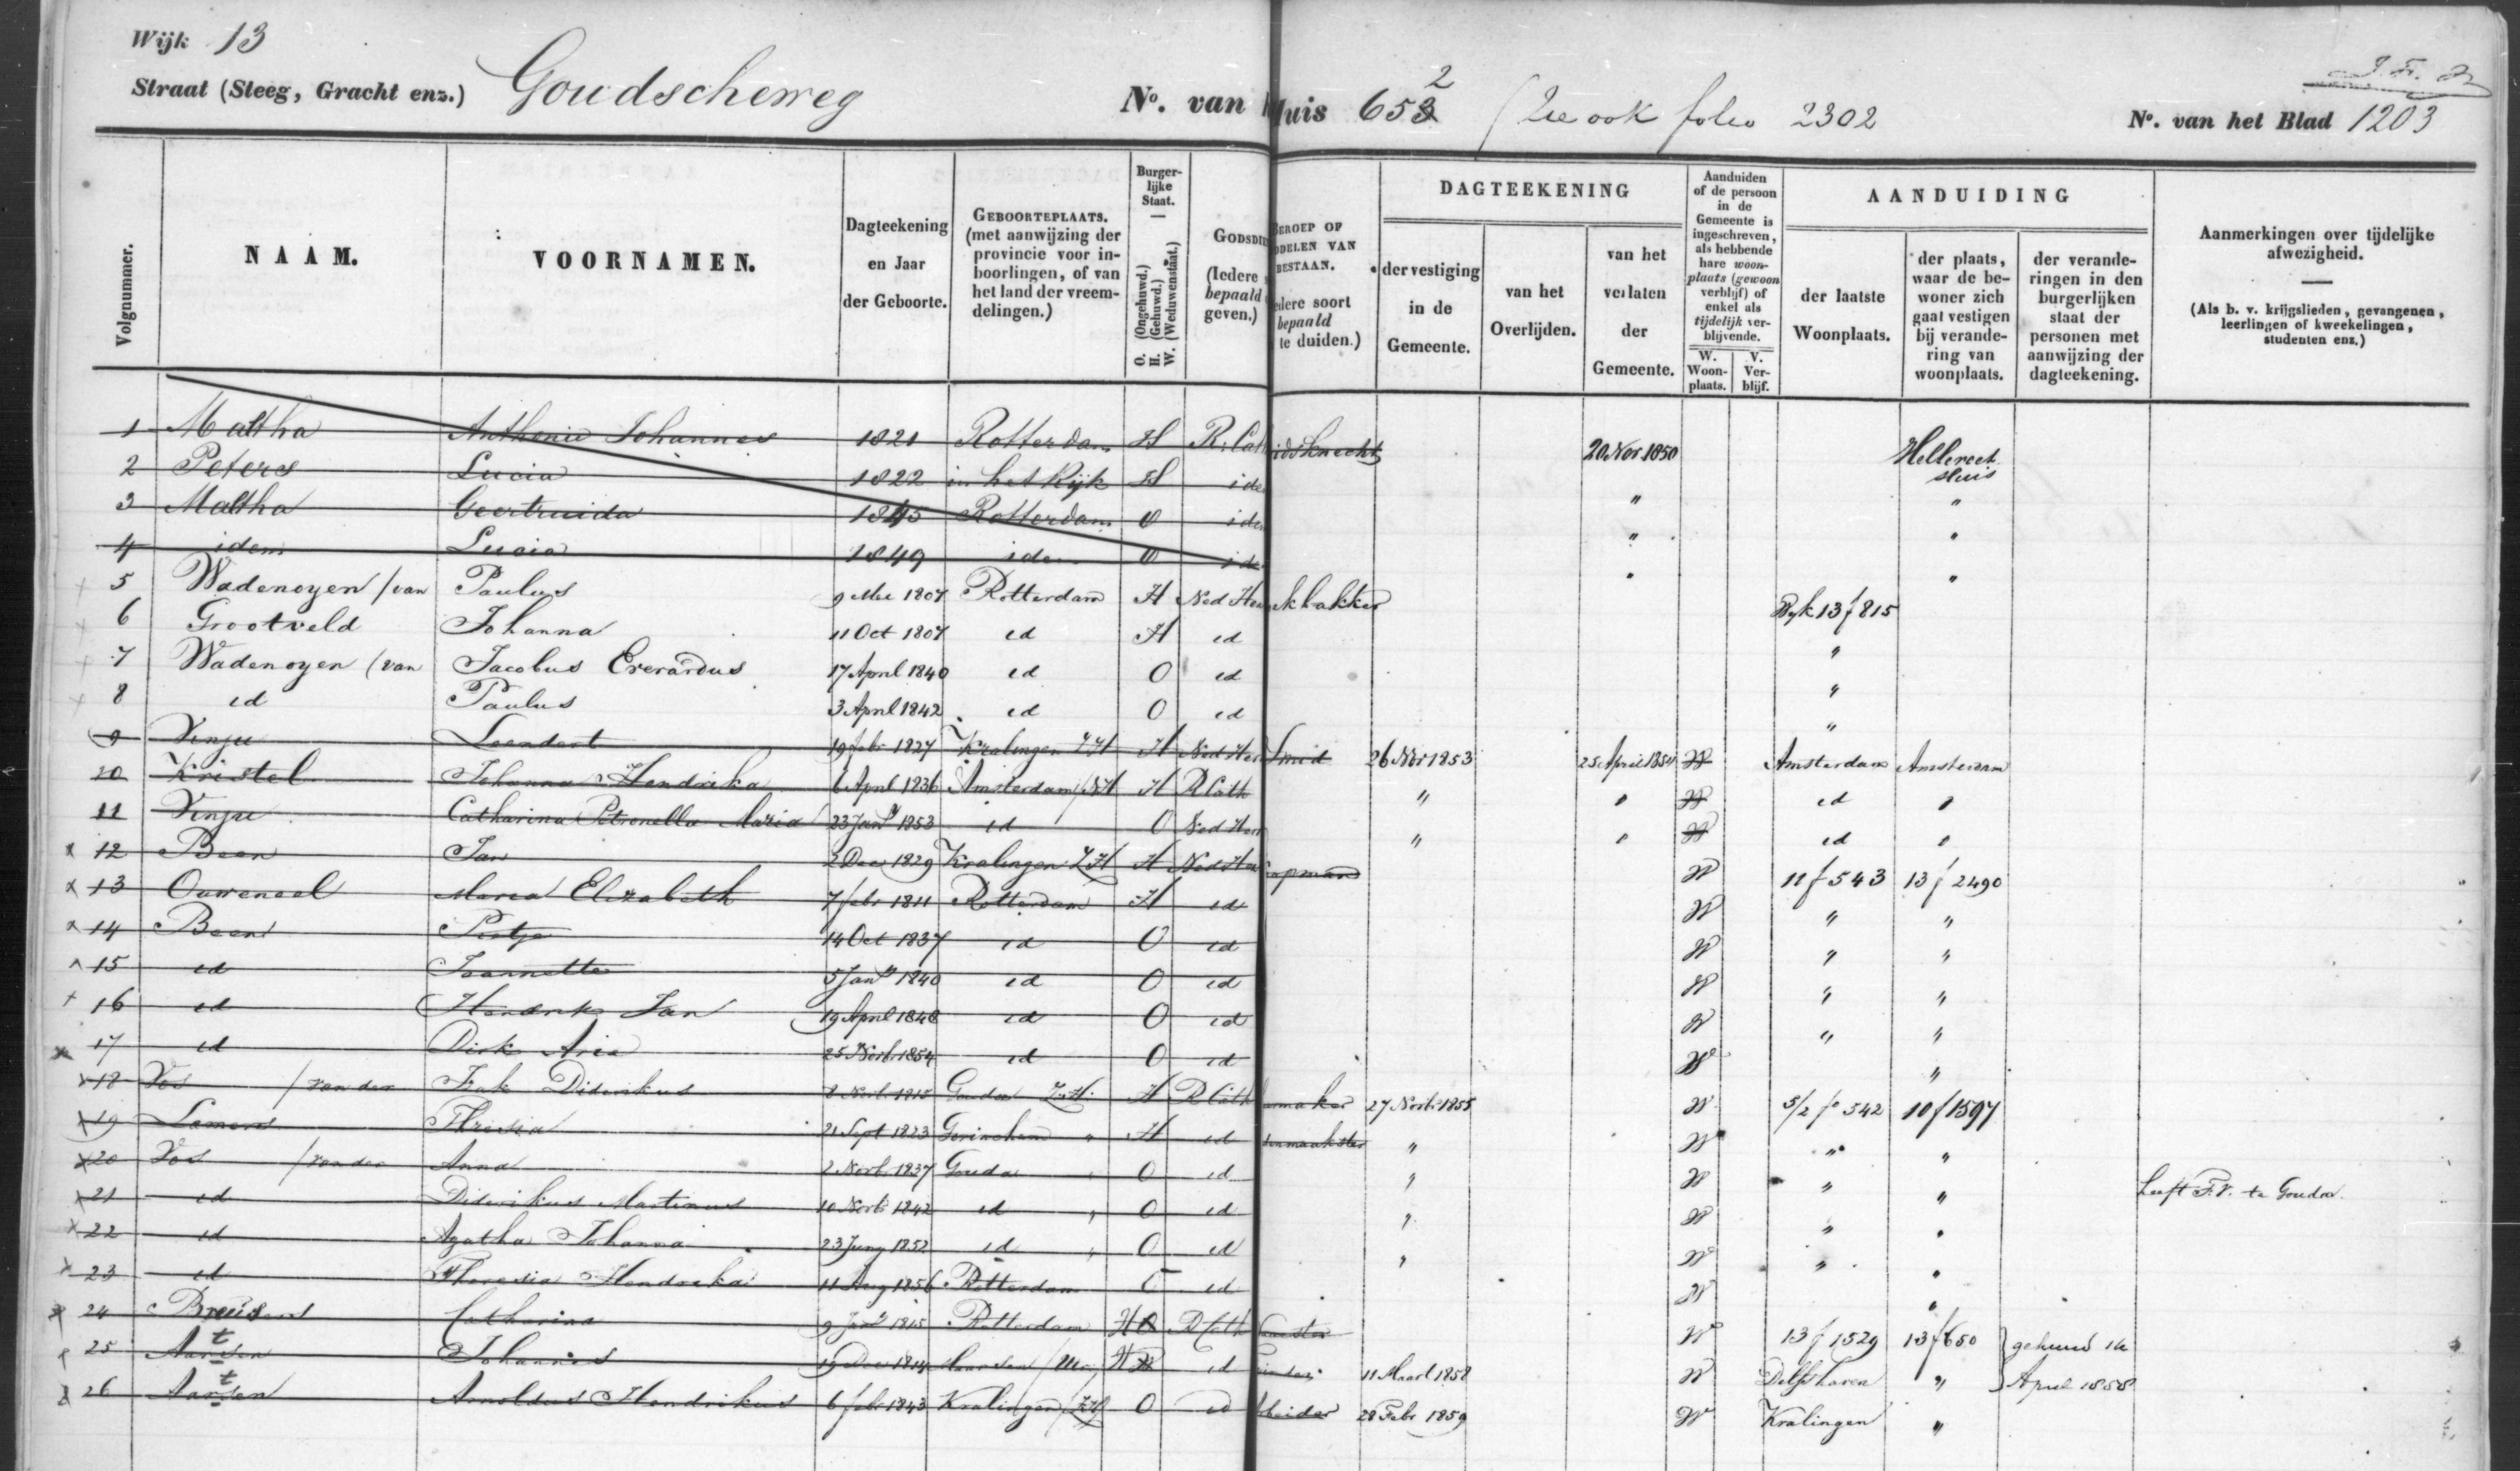 Wijk 13
Straat (Steeg, Gracht enz.) Goudscheweg No. van Huis 652 (Zie ook folio 2302 No. van het Blad 1203
Volgnummer. NAAM. VOORNAMEN. Dagteekening en Jaar der Geboorte. GEBOORTEPLAATS. (met aanwijzing der provincie voor inboorlingen, of van het land der vreemdelingen.) Burgerlijke Staat. O. (Ongehuwd.) H. (Gehuwd.) W. (Weduwenstaat.) GODSDIE (Iedere bepaald geven.) BEROEP OF DDELEN VAN BESTAAN. edere soort bepaald te duiden.) DAGTEEKENING der vestiging in de Gemeente. van het Overlijden. van het verlaten der Gemeente. Aanduiden of de persoon in de Gemeente is ingeschreven, als hebbende hare woonplaats (gewoon verblijf) of enkel als tijdelijk verblijvende. W. Woonplaats. V. Verblijf. AANDUIDING der laatste Woonplaats. der plaats, waar de bewoner zich gaat vestigen bij verandering van woonplaats. der veranderingen in den burgerlijken staat der personen met aanwijzing der dagteekening. Aanmerkingen over tijdelijke afwezigheid. (Als b. v. krijgslieden, gevangenen, leerlingen of kweekelingen, studenten enz.)
1 Maltha Anthonie Johannes 1821 Rotterdam H R. Cath idsknecht 20 Nov 1850 Hellevoetsluis
2 Peters Lucia 1822 in het Rijk H ide " "
3 Maltha Geertruida 1845 Rotterdam O ide " "
4 idem Lucia 1849 idem O ide " "
5 Wadenoyen / van Paulus 9 Mei 1807 Rotterdam H Ned Her kbakker Wyk 13 f 815
6 Grootveld Johanna 11 Oct 1807 id H id "
7 Wadenoyen (van Jacobus Everardus 17 April 1840 id O id "
8 id Paulus 3 April 1842 id O id "
9 Vinju Leendert 19 febr 1827 Kralingen ZH H Ned Her Smid 26 Nov 1853 25 April 1854 W Amsterdam Amsterdam
10 Kristel Johanna Hendrika 6 April 1836 Amsterdam (NH H R Cath " " W id "
11 Vinju Catharina Petronella Maria 23 Jany 1853 id O Ned Her " " W id "
12 Been Jan 2 Dec 1829 Kralingen ZH H Ned Her opman W 11 f 543 13 f 2490
13 Ouweneel Maria Elizabeth 7 febr 1811 Rotterdam H id W " "
14 Been Pietje 14 Oct 1837 id O id W " "
15 id Jannette 5 Jany 1840 id O id W " "
16 id Hendrik Jan 19 April 1848 id O id W " "
17 id Dirk Arie 25 Novbr 1854 id O id W "
18 Vos / van der Izak Diderikus 8 Novbr 1815 Gouda Z.H. H R Cath nmaker 27 Novbr 1855 W 5/2 fo 542 10 f 1597
19 Lamers Thresia 21 Sept 1823 Gorinchem " H id enmaakster " W " "
20 Vos / van der Anna 2 Novb 1837 Gouda " O id " W " " heeft F.V. te Gouda
21 id Diderikus Martinus 10 Novbr 1842 id " O id " W " "
22 id Agatha Johanna 23 Juny 1852 id " O id " W " "
23 id Theresia Hendrika 11 Aug 1856 Rotterdam O id W "
24 Catharina 9 Jany 1815 Rotterdam H R Cath W 13 f 1529 13 f 650 gehuwd 14
25 Aartsen Johannes 19 Dec 1814 Maarsen / Utr. H id 11 Maart 1858 W Delfshaven " April 1858
26 Aartsen Arnoldus Hendrikus 6 febr 1843 Kralingen (ZH) O id rbeider 28 Febr 1859 W Kralingen "